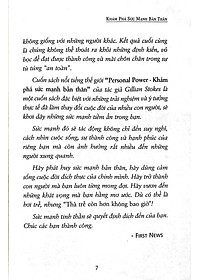 KHÁM PHÁ SỨC MẠNH BẢN THÂN
không giống với những người khác. Kết quả cuối cùng
là chúng không thể thoát ra khỏi những định kiến, vỏ
bọc để đạt được thành công và mãi chôn chân trong sự
tù túng "an toàn".
Cuốn sách nổi tiếng thế giới "Personal Power - Khám
phá sức mạnh bản thân" của tác giả Gillian Stokes là
một cuốn sách đặc biệt với những trải nghiệm và ý tưởng
thực tế đã làm thay đổi cuộc đời của nhiều con người, sẽ
khơi dậy những sức mạnh tiềm ẩn trong bạn.
Sức mạnh đó sẽ tác động không chỉ đến suy nghĩ,
cách nhìn cuộc sống, sự thành công và hạnh phúc của
riêng bạn mà còn ảnh hưởng rất nhiều đến những
người xung quanh.
Hãy phát huy sức mạnh bản thân, hãy dũng cảm
sống cuộc đời đích thực của chính mình. Hãy trở thành
con người mà bạn luôn từng mong đợi. Hãy vươn đến
những khát vọng mà bạn hằng mơ ước. Dù có thể là
hơi trễ, nhưng "Thà trễ còn hơn không bao giờ"!
Sức mạnh tinh thần sẽ quyết định đích đến của bạn.
Chúc các bạn thành công.
- FIRST NEWS
7